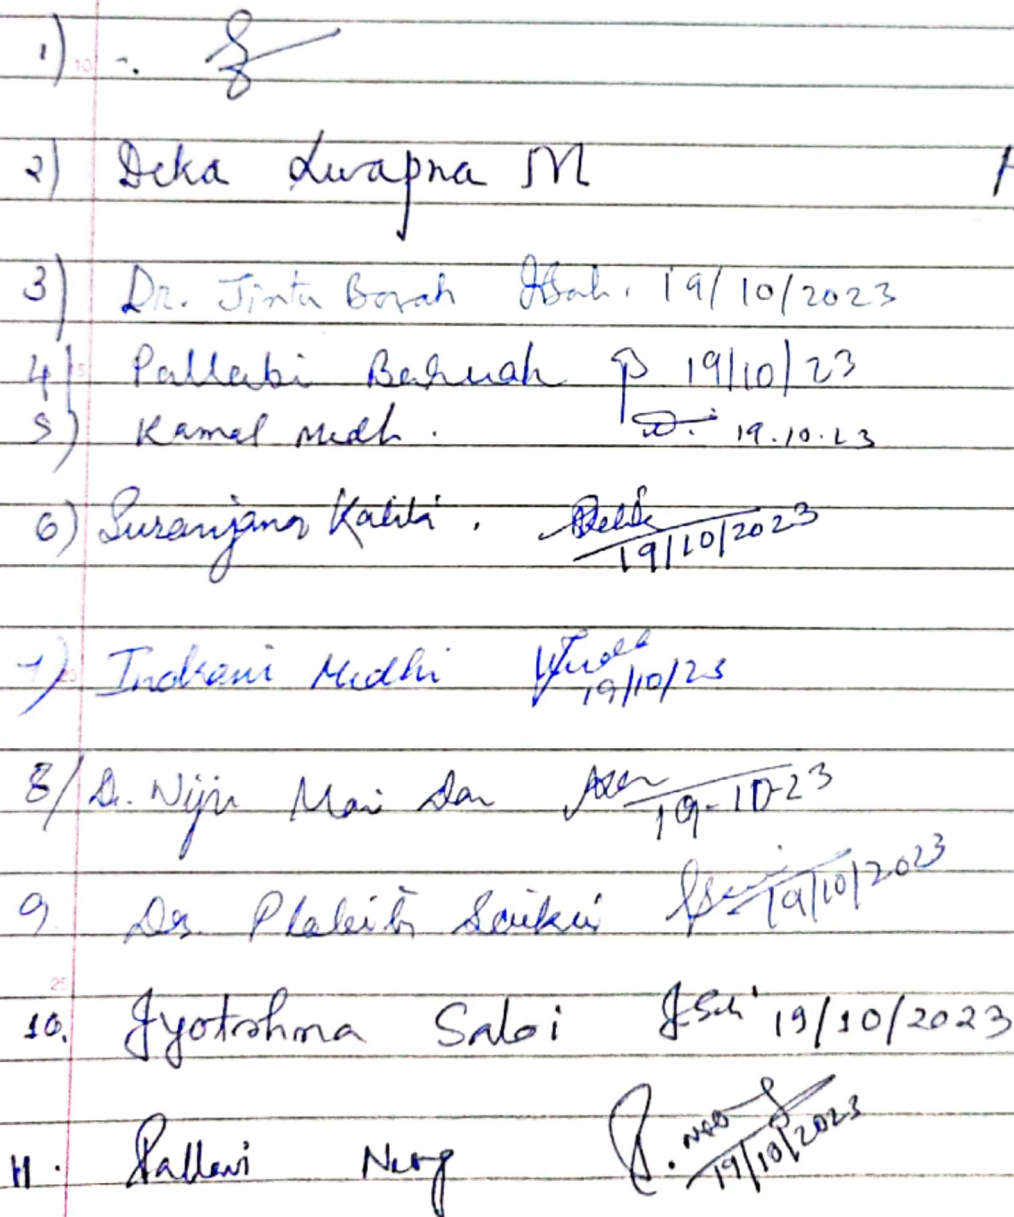 1)
2) Deka Swapna M
3) Dr. Jintu Borah 19/10/2023
4) Pallabi Baruah 19/10/23
5) Kamal Medhi. 19.10.23
6) Suranjana Kalita. 19/10/2023
7) Indrani Medhi 19/10/23
8) Dr. Niju Moni Das 19-10-23
9. Dr. Plabita Saikia 19/10/2023
10. Jyotishma Saloi 19/10/2023
11. Pallavi Neog P. Neog 19/10/2023